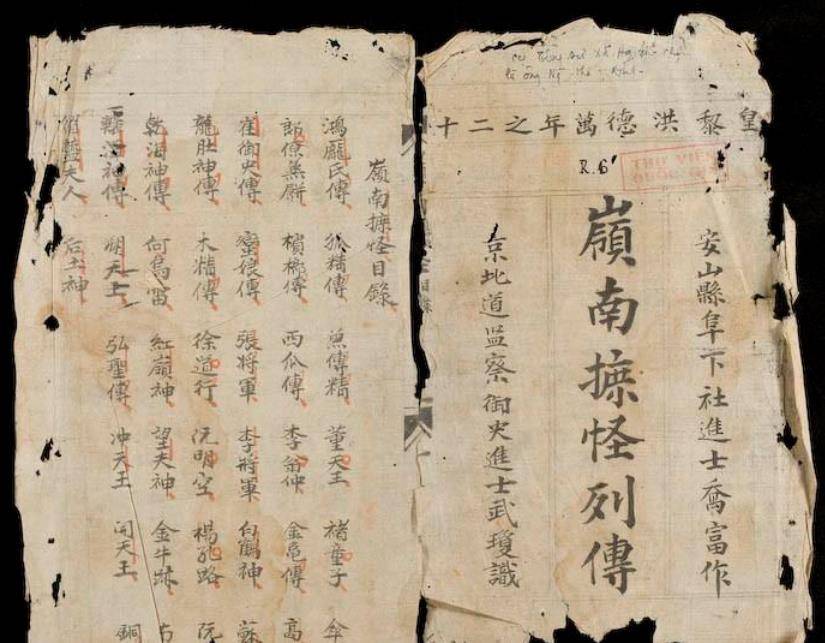 皇黎洪德萬年之二十
R.6
THƯ VIỆN
QUỐC
安山縣阜下社進士喬富作
嶺南摭怪列傳
京北道监察御史進士武瓊識
嶺南摭怪目錄
鴻龐氏傳 狐精傳 魚傳精 董天王 褚童子 傘
郎僚蒸餅 檳榔傳 西瓜傳 李翁仲 金龜傳 高
崔御史傳 蠻娘傳 張將軍 李將軍 白鶴神 蘇
龍肚神傳 大精傳 徐道行 阮明空 楊孔路 阮
乾海神傳 何烏雷 紅嶺神 望夫神 金牛跡
神傳 朔天王 弘聖傳 冲天王 開天王 銅
夫人 后土神